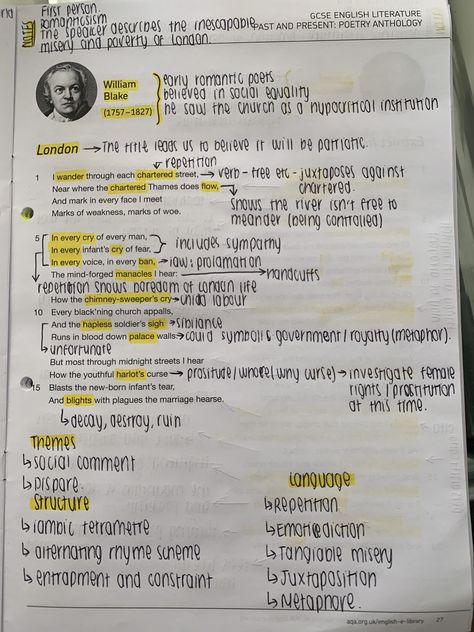 First person.
romanticism
The speaker describes the inescapable
misery and poverty of London.
NOTES
GCSE ENGLISH LITERATURE
PAST AND PRESENT: POETRY ANTHOLOGY
William
Blake
(1757–1827)
early romantic poets
believed in social equality
he saw the church as a hypocritical institution
London → The title leads us to believe it will be patriotic.
repetition
1 I wander through each chartered street, → verb - free etc - juxtaposes against
chartered.
Near where the chartered Thames does flow,
And mark in every face I meet
shows the river isn't free to
meander (being controlled)
Marks of weakness, marks of woe.
5 In every cry of every man,
In every infant's cry of fear,
includes sympathy
In every voice, in every ban, → law: proclamation
The mind-forged manacles I hear: → handcuffs
repetition shows boredom of London life
How the chimney-sweeper's cry → child labour
10 Every black'ning church appalls,
And the hapless soldier's sigh → sibilance
Runs in blood down palace walls → could symbolis government / royalty (metaphor).
↳ unfortunate
But most through midnight streets I hear
How the youthful harlot's curse → prositude / whore (why curse) → investigate female
rights / prostitution
at this time.
15 Blasts the new-born infant's tear,
And blights with plagues the marriage hearse.
↳ decay, destroy, ruin
Themes
↳ social comment
↳ Dispare.
Structure
↳ iambic tetrametre
↳ alternating rhyme scheme
↳ entrapment and constraint
Language
↳ Repetition
↳ Emotive diction
↳ Tangiable misery
↳ Juxtaposition
↳ Metaphore.
aqa.org.uk/english-e-library 27